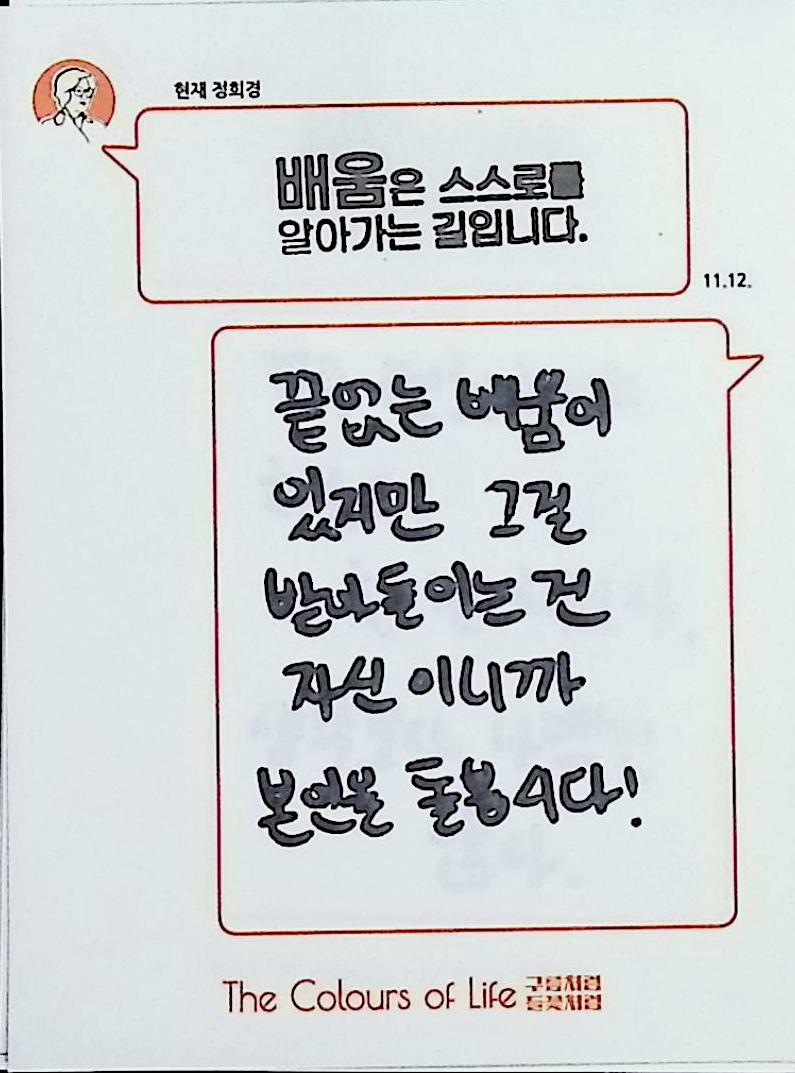 현재 정희경
배움은 스스로를
알아가는 길입니다.
11.12.
끝없는 배움이
있지만 그걸
받아들이는 건
자신이니까
본인을 돌봅시다!
The Colours of Life 구름처럼
들꽃처럼